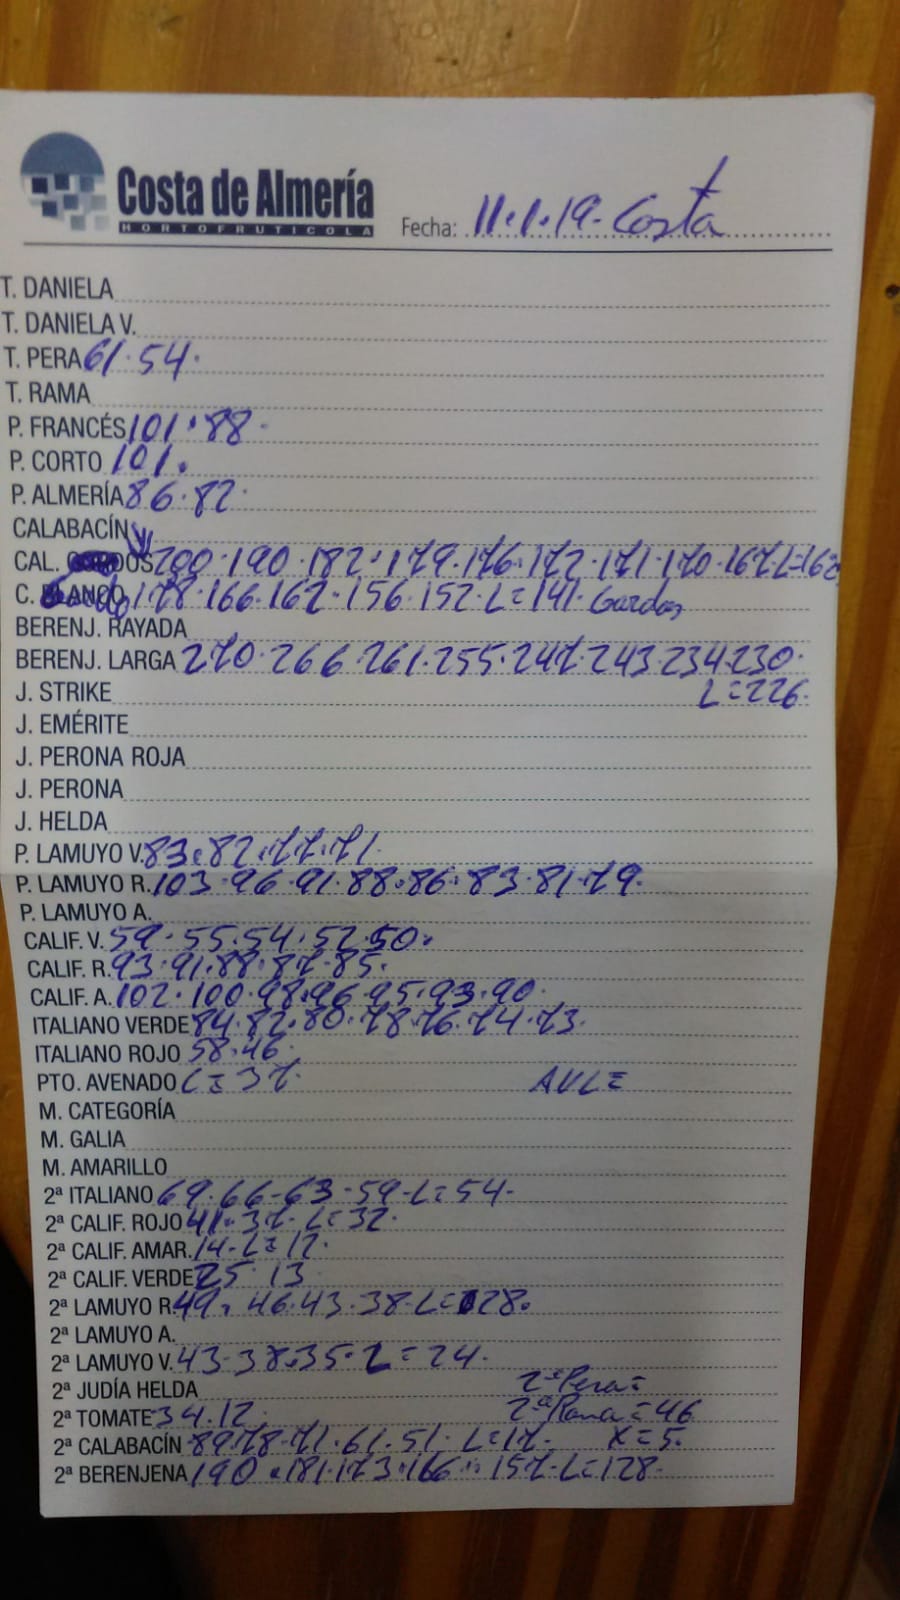 Costa de Almería
HORTOFRUTICOLA
Fecha: 11.1.19. Costa
T. DANIELA
T. DANIELA V.
T. PERA 61.54.
T. RAMA
P. FRANCÉS 101.88.
P. CORTO 101.
P. ALMERÍA 86.82.
CALABACÍN
CAL. 200.190.182.179.176.172.171.170.167.L=162
C. 178.166.162.156.152.L=141. Gordos
BERENJ. RAYADA
BERENJ. LARGA 270.266.261.255.247.243.234.230.
J. STRIKE L=226.
J. EMÉRITE
J. PERONA ROJA
J. PERONA
J. HELDA
P. LAMUYO V. 83.82.77.71.
P. LAMUYO R. 103.96.91.88.86.83.81.79.
P. LAMUYO A.
CALIF. V. 59.55.54.52.50.
CALIF. R. 93.91.88.87.85.
CALIF. A. 102.100.98.96.95.93.90.
ITALIANO VERDE 84.82.80.78.76.74.73.
ITALIANO ROJO 58.46.
PTO. AVENADO L=37. AVL=
M. CATEGORÍA
M. GALIA
M. AMARILLO
2ª ITALIANO 69.66-63-59-L=54-
2ª CALIF. ROJO 41.37-L=32.
2ª CALIF. AMAR. 14-L=12.
2ª CALIF. VERDE 25 13
2ª LAMUYO R. 49.46.43.38-L=28.
2ª LAMUYO A.
2ª LAMUYO V. 43-38.35.L=24.
2ª JUDÍA HELDA 2ªPera=
2ª TOMATE 34.12. 2ªRama=46
2ª CALABACÍN 89.78.71.61.51. L=17. X=5.
2ª BERENJENA 190.181.173.166.157-L=128.